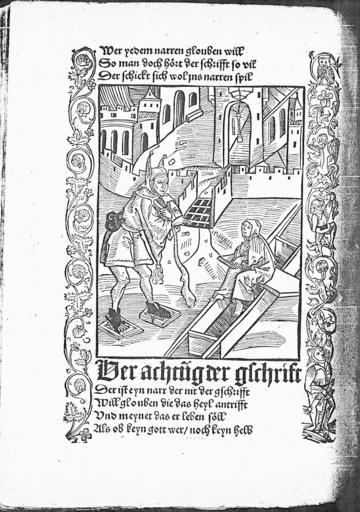 Wer yedem narren glouben will
So man doch hört der schrifft so vil
Der schickt sich wol jns narren spil
Verachtũg der gschrift
Der ist eyn narr der nit der gschrifft
Will glouben die das heyl antrifft
Vnd meynet das er leben söll
Als ob keyn gott wer / noch keyn hell